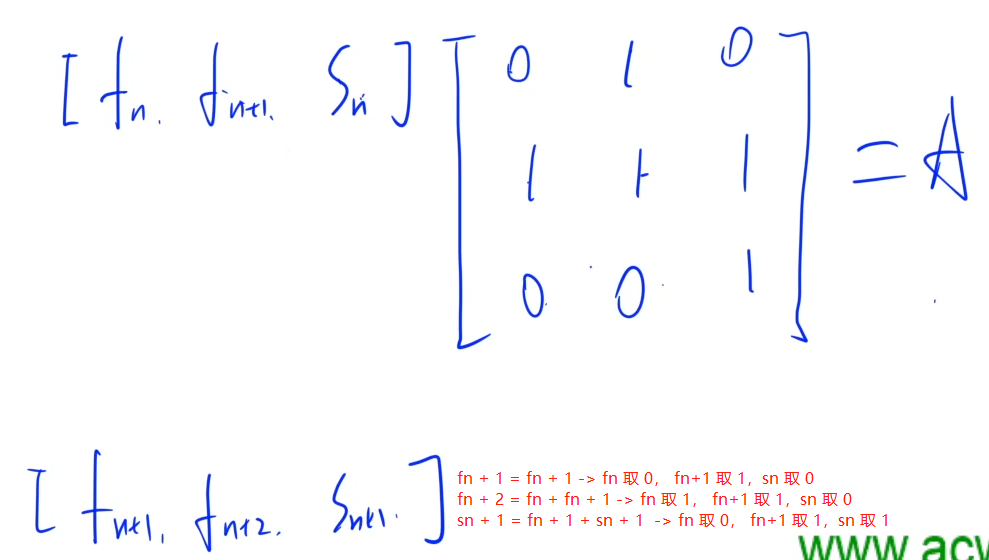 [fn, fn+1, Sn] [0 1 0
1 1 1 = A
0 0 1]
[fn+1, fn+2, Sn+1.]
fn + 1 = fn + 1 -> fn 取 0， fn+1 取 1，sn 取 0
fn + 2 = fn + fn + 1 -> fn 取 1， fn+1 取 1，sn 取 0
sn + 1 = fn + 1 + sn + 1 -> fn 取 0， fn+1 取 1，sn 取 1
www.acw